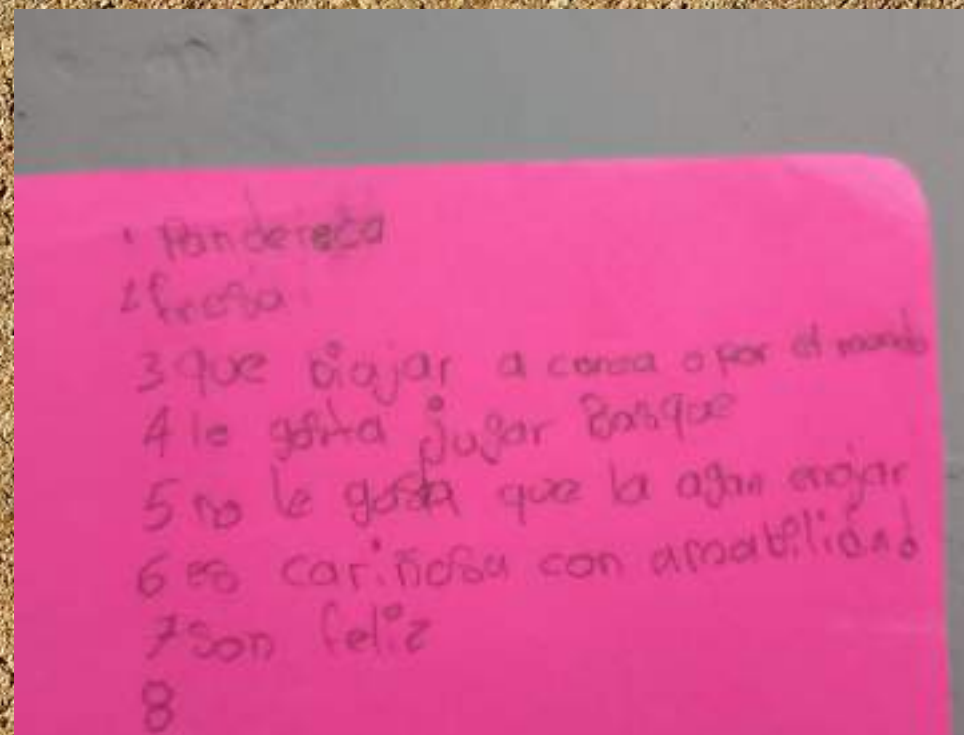 1 Pandereta
2 fresa
3 que viajar a corea o por el mundo
4 le gosta jugar Basque
5 no le gosta que la agan enojar
6 es cariñosa con amabilidad
7 son feliz
8